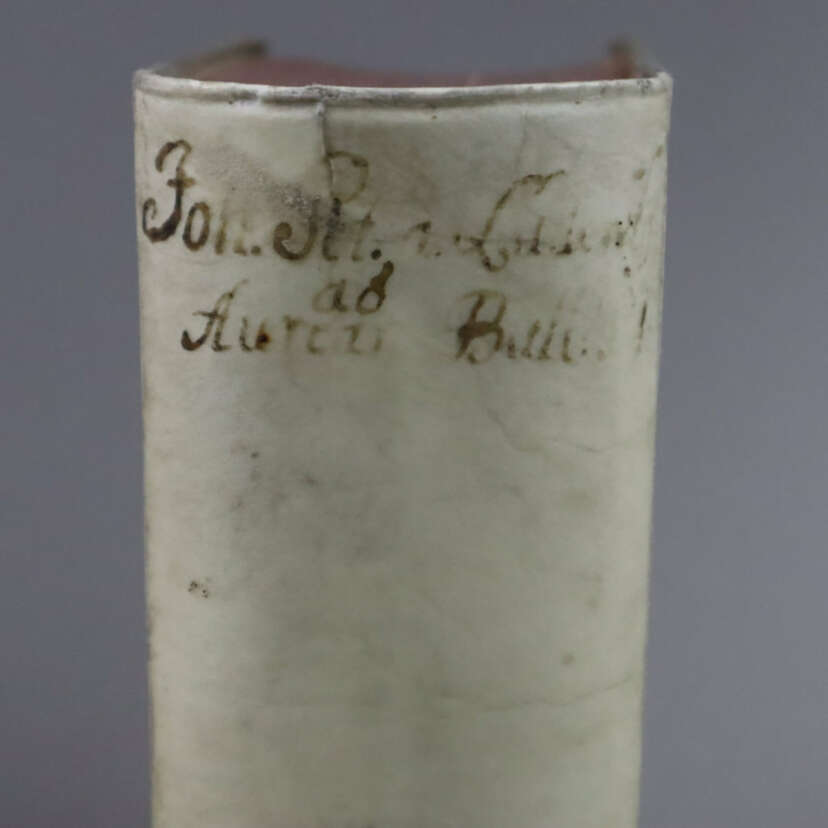 Joh. Pet. a. Ludewig
ad
Auream Bull.